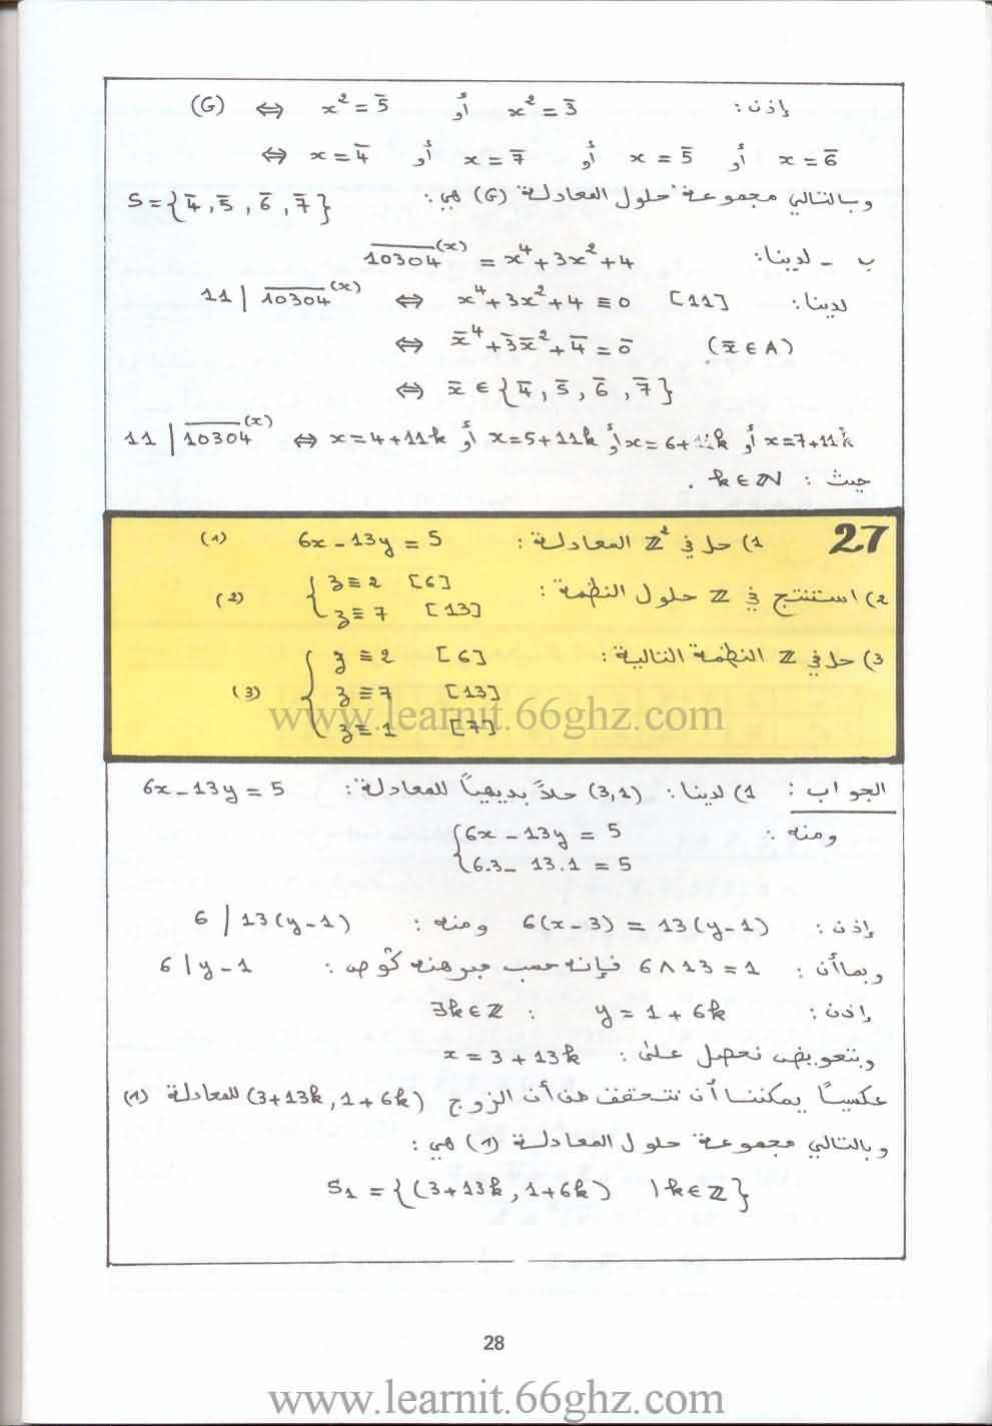 إذن: x² = 3̄ أو x² = 5̄ ⇔ (G)
x = 6̄ أو x = 5̄ أو x = 7̄ أو x = 4̄ ⇔
وبالتالي مجموعة حلول المعادلة (G) هي: S = {4̄, 5̄, 6̄, 7̄}
ب - لدينا: \overline{10304}^{(x)} = x⁴ + 3x² + 4
لدينا: 11 | \overline{10304}^{(x)} ⇔ x⁴ + 3x² + 4 ≡ 0 [11]
⇔ x̄⁴ + 3̄x̄² + 4̄ = 0̄ (x̄ ∈ A)
⇔ x̄ ∈ {4̄, 5̄, 6̄, 7̄}
11 | \overline{10304}^{(x)} ⇔ x = 4 + 11k أو x = 5 + 11k أو x = 6 + 11k أو x = 7 + 11k
حيث : k ∈ ℕ .
27 1) حل في ℤ² المعادلة : 6x - 13y = 5 (1)
2) استنتج في ℤ حلول النظمة : { z ≡ 2 [6]
z ≡ 7 [13] (2)
3) حل في ℤ النظمة التالية : { z ≡ 2 [6]
z ≡ 7 [13] (3)
z ≡ 1 [7]
www.learnit.66ghz.com
الجواب : 1) لدينا : (3,1) حلاً بديهياً للمعادلة : 6x - 13y = 5
ومنه : { 6x - 13y = 5
6.3 - 13.1 = 5
إذن : 6(x - 3) = 13(y - 1) ومنه : 6 | 13(y - 1)
وبما أن : 6 ∧ 13 = 1 فإنه حسب مبرهنة كوص : 6 | y - 1
إذن : y = 1 + 6k : ∃k ∈ ℤ
وبتعويض نحصل على : x = 3 + 13k
عكسياً يمكننا أن نتحقق من أن الزوج (3 + 13k, 1 + 6k) للمعادلة (1)
وبالتالي مجموعة حلول المعادلة (1) هي :
S₁ = {(3 + 13k, 1 + 6k) | k ∈ ℤ}
28
www.learnit.66ghz.com